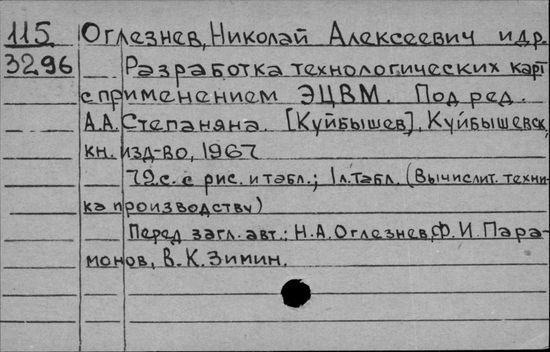 115 Оглезнев, Николай Алексеевич и др.
3296 Разработка технологических карт
с применением ЭЦВМ. Под ред.
А.А. Степаняна. [Куйбышев], Куйбышевск.
кн. изд-во, 1967
72 с. с рис. и табл.; 1 л. табл. (Вычислит. техни-
ка производству)
Перед загл. авт.: Н.А. Оглезнев, Ф.И. Пара-
монов, В.К. Зимин.